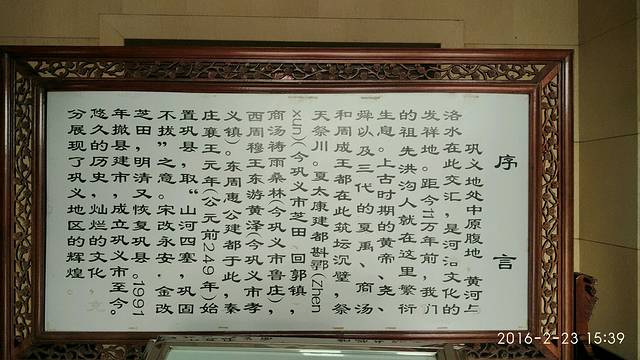 序言
巩义地处中原腹地,黄河与
洛水在此交汇,是河洛文化的
发祥地。距今11万年前,我们
的祖先洪沟人就在这里繁衍
生息。上古时期的黄帝、尧、
舜以及三代的夏禹、商汤
和周成王都在此筑坛沉璧,祭
天祭川。夏太康建都斟鄩(Zhen
xun)(今巩义市芝田、回郭镇,
商汤祷雨桑林(今巩义市鲁庄),
西周穆王东游黄泽今巩义市孝
义镇)。东周惠公建都于此,秦
庄襄王元年(公元前249年)始
置巩县,取“山河四塞,巩固
不拔”之意。宋改永安,金改
芝田,明清又恢复巩县。1991
年撤县建市,成立巩义市至今。
悠久的历史,灿烂的文化,充
分展现了巩义地区的辉煌。
2016-2-23 15:39